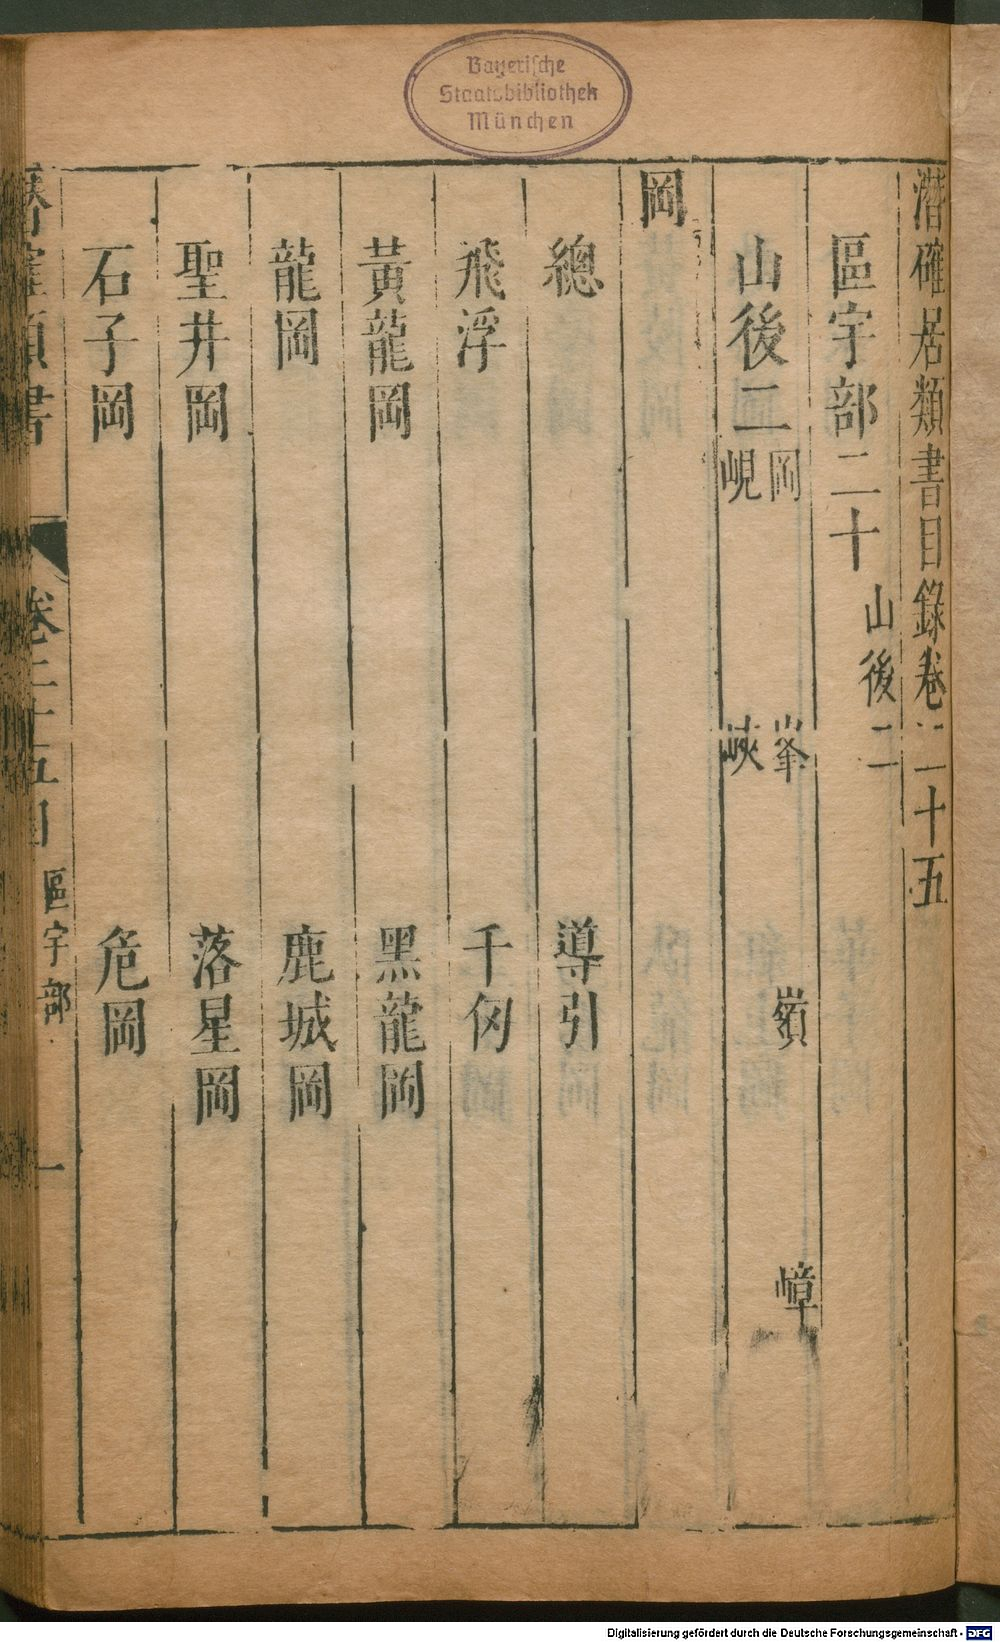 Bayerische
Staatsbibliothek
München
潛確居類書目錄卷二十五
區宇部二十 山後二
山後二 岡 峯 嶺 嶂
峴 峽
岡
總 導引
飛浮 千仞
黃龍岡 黑龍岡
龍岡 鹿城岡
聖井岡 落星岡
石子岡 危岡
潛確類書 卷二十五目 區宇部 一
Digitalisierung gefördert durch die Deutsche Forschungsgemeinschaft - DFG